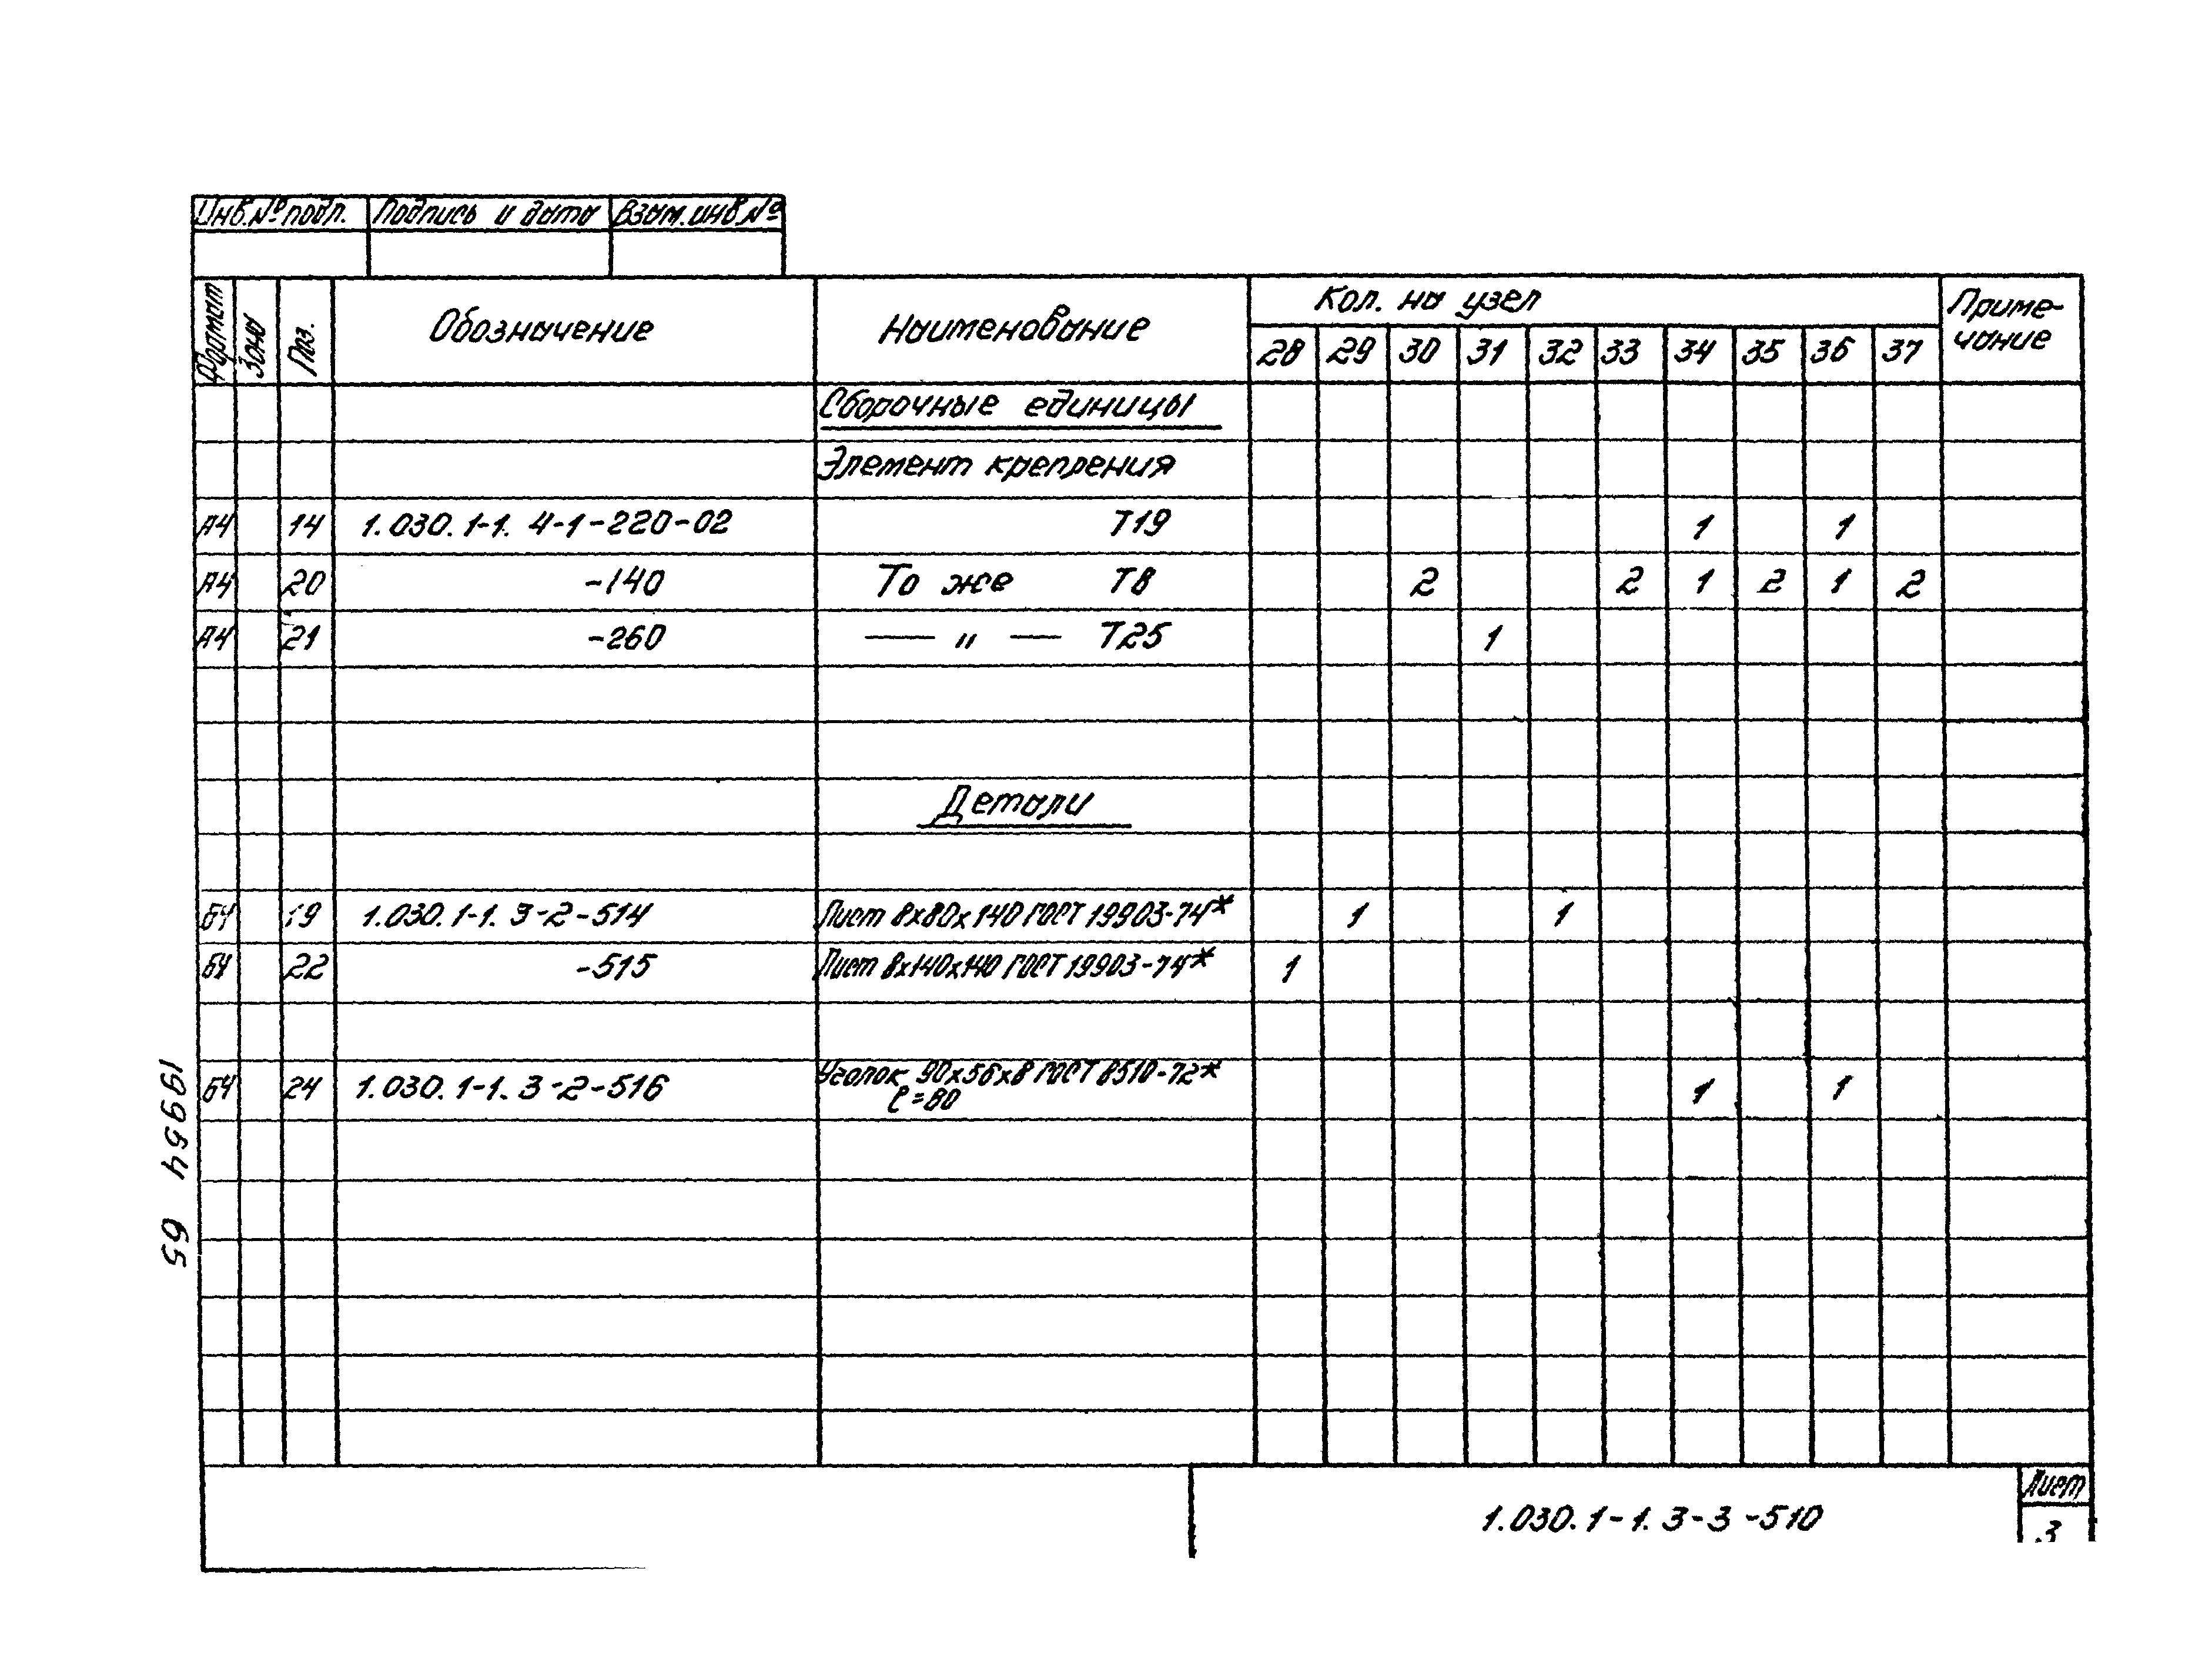 Инв.№ подл. Подпись и дата Взам.инв.№
Формат Зона Поз. Обозначение Наименование Кол. на узел Приме-
чание
28 29 30 31 32 33 34 35 36 37
Сборочные единицы
Элемент крепления
А4 14 1.030.1-1. 4-1-220-02 Т19 1 1
А4 20 -140 То же Т8 2 2 1 2 1 2
А4 21 -260 — " — Т25 1
Детали
БЧ 19 1.030.1-1. 3-2-514 Лист 8х80х140 ГОСТ 19903-74* 1 1
БЧ 22 -515 Лист 8х140х140 ГОСТ 19903-74* 1
БЧ 24 1.030.1-1. 3-2-516 Уголок 90х56х8 ГОСТ 8510-72* 1 1
ℓ=80
19954 65
1.030.1-1. 3-3-510
Лист
3